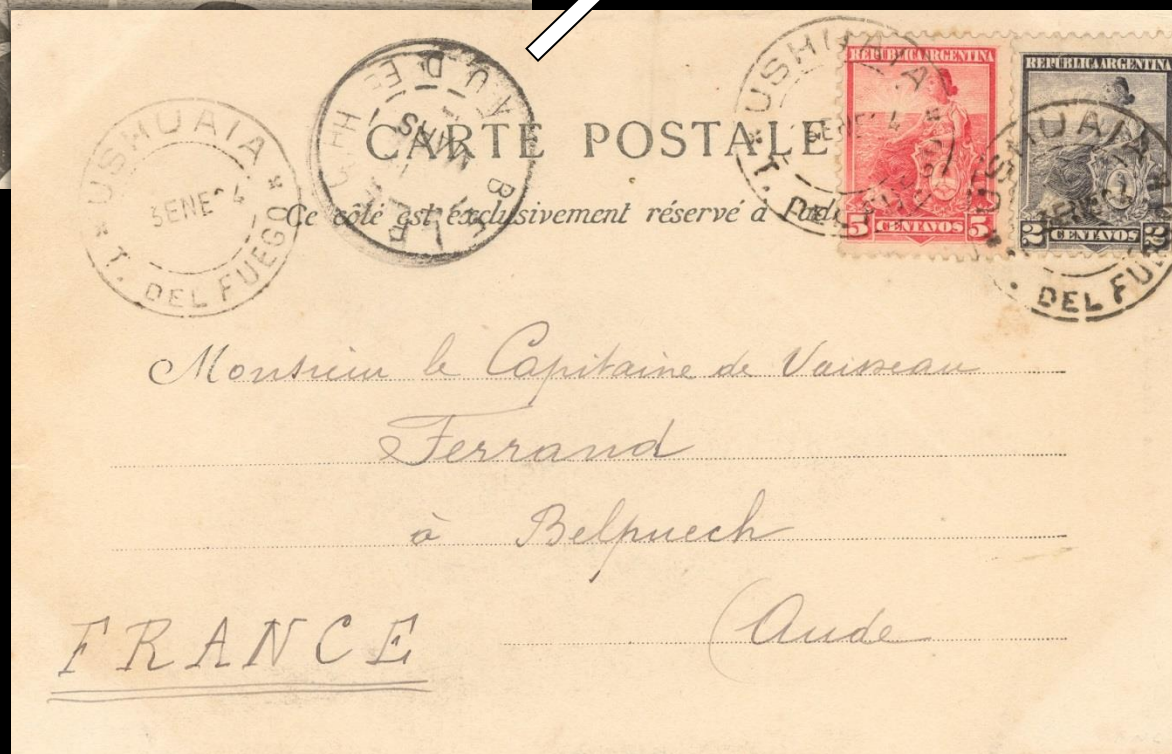 USHUAIA
3 ENE 4
T. DEL FUEGO
BELPECH
AUDE
CARTE POSTALE
Ce côté est exclusivement réservé à l'ad
USHUAIA
T. DEL FUEGO
REPUBLICA ARGENTINA
5 CENTAVOS 5
REPUBLICA ARGENTINA
2 CENTAVOS 2
USHUAIA
3 ENE
DEL FU
Monsieur le Capitaine de Vaisseau
Ferrand
à Belpuech
(Aude
FRANCE